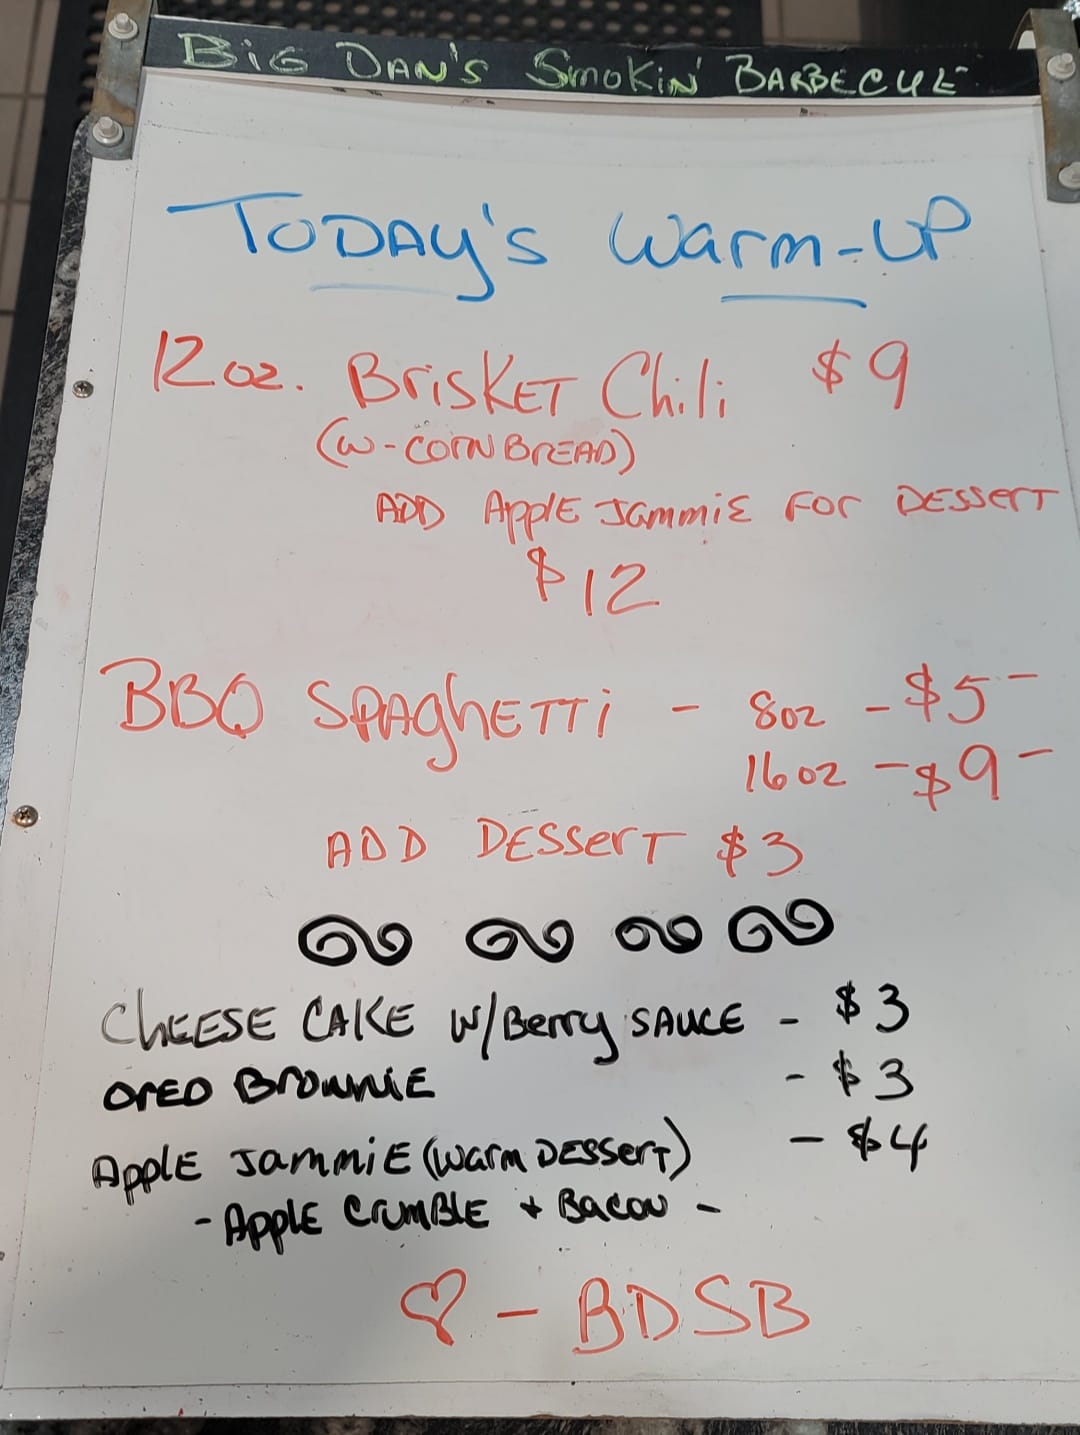 Big Dan's Smokin' Barbecue
Today's Warm-up
12 oz. Brisket Chili $9
(w-cornbread)
Add Apple Jammie for Dessert
$12
BBQ Spaghetti - 8oz - $5-
16oz - $9-
Add Dessert $3
Cheese Cake w/Berry Sauce - $3
Oreo Brownie - $3
Apple Jammie (Warm Dessert) - $4
- Apple Crumble + Bacon -
♡ - BDSB